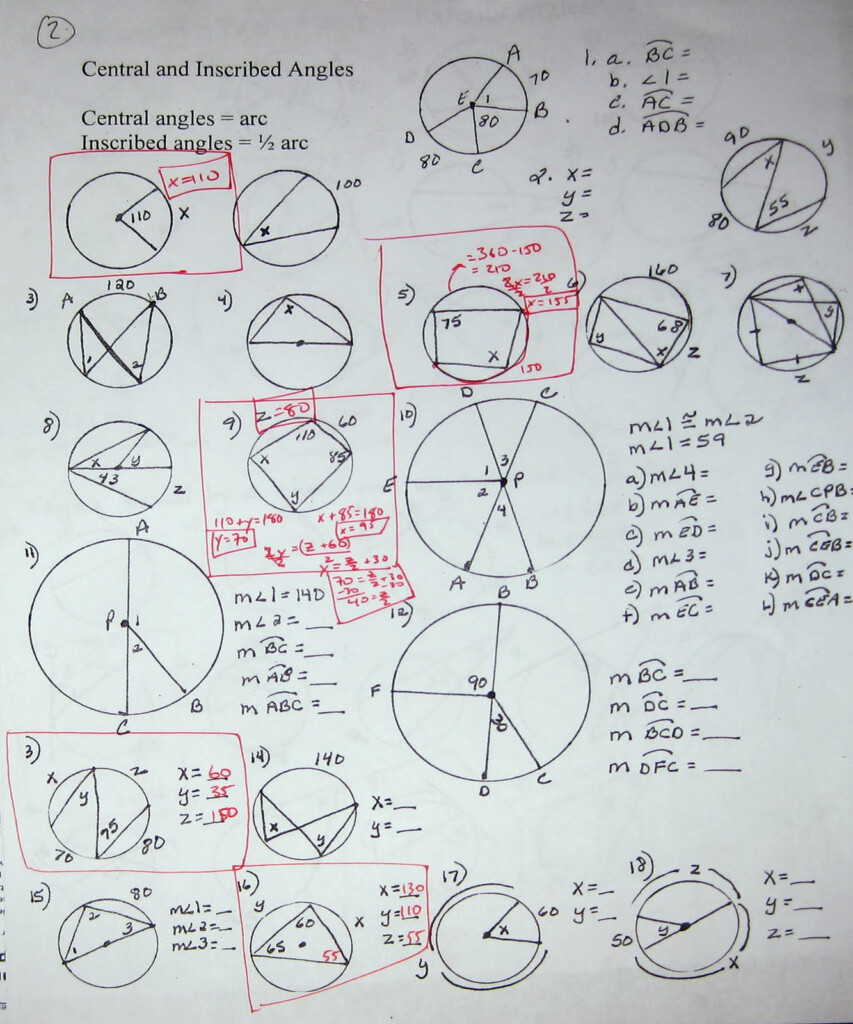 2.
Central and Inscribed Angles
Central angles = arc
Inscribed angles = ½ arc
A
70
E
1
B
80
D
80
C
1. a. BC =
b. ∠1 =
c. AC =
d. ADB =
110
x
x=110
100
x
2. x=
y =
z =
90
y
x
55
80
z
3)
120
A
B
1
2
4)
x
= 360-150
= 210
x = 155
5)
75
x
150
6)
160
68
y
x
z
7)
x
y
z
8)
x
y
43
z
9)
z = 80
60
110
85
x
y
110+y=180
y=70
x+85=180
x=95
= (z+60)
70 = z/2 + 30
-30 -30
40 = z/2
10)
D
C
E
1
3
P
2
4
A
B
m∠1 ≅ m∠2
m∠1 = 59
a) m∠4 =
b) m AE =
c) m ED =
d) m∠3 =
e) m AB =
f) m EC =
g) m EB =
h) m∠CPB =
i) m CB =
j) m CEB =
k) m DC =
m CEA =
11)
A
P
1
2
C
B
m∠1 = 140
m∠2 = __
m BC = __
m AB = __
m ABC = __
12)
B
F
90
30
D
C
m BC = __
m DC = __
m BCD = __
m DFC = __
3)
x
z
y
95
70
80
x = 60
y = 35
14)
140
x
y
x = __
y = __
15)
80
2
3
1
m∠1 = __
m∠2 = __
m∠3 = __
16)
y
60
x
65
55
x = 130
y = 110
z = 55
17)
60
x
y
x = __
y = __
18)
z
50
y
x
x = __
y = __
z = __